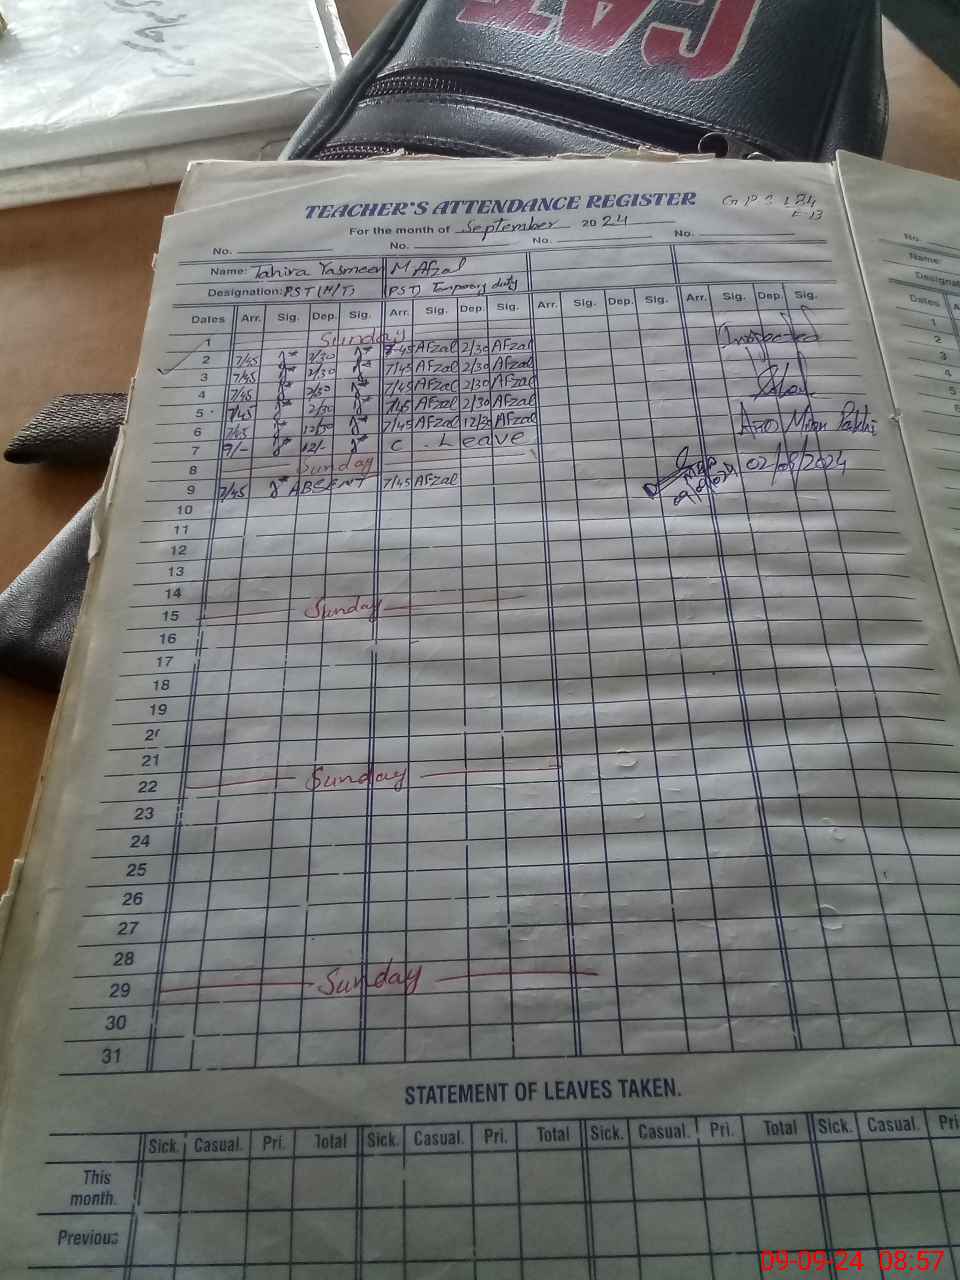 CAT
TEACHER'S ATTENDANCE REGISTER
For the month of September 2024
No. No. No. No.
Name: Tahira Yasmeen M Afzal
Designation: PST (H/T) (PST) Temporary duty
Dates Arr. Sig. Dep. Sig. Arr. Sig. Dep. Sig. Arr. Sig. Dep. Sig. Arr. Sig. Dep. Sig.
1 Sunday
2 7/45 2/30 7-45 Afzal 2/30 Afzal
3 7/45 2/30 7/45 Afzal 2/30 Afzal
4 7/45 2/30 7/45 Afzal 2/30 Afzal
5 7/45 2/30 7/45 Afzal 2/30 Afzal
6 7/45 12/30 7/45 Afzal 12/30 Afzal
7 9/- 12/- C. Leave
8 Sunday
9 7/45 ABSENT 7/45 Afzal
Inspected
02/09/2024
09/09/024
10
11
12
13
14
15 Sunday
16
17
18
19
20
21
22 Sunday
23
24
25
26
27
28
29 Sunday
30
31
STATEMENT OF LEAVES TAKEN.
Sick. Casual. Pri. Total Sick. Casual. Pri. Total Sick. Casual. Pri. Total Sick. Casual. Pri
This
month.
Previous
No.
Name:
Dates Arr.
1
2
3
4
5
6
09-09-24 08:57